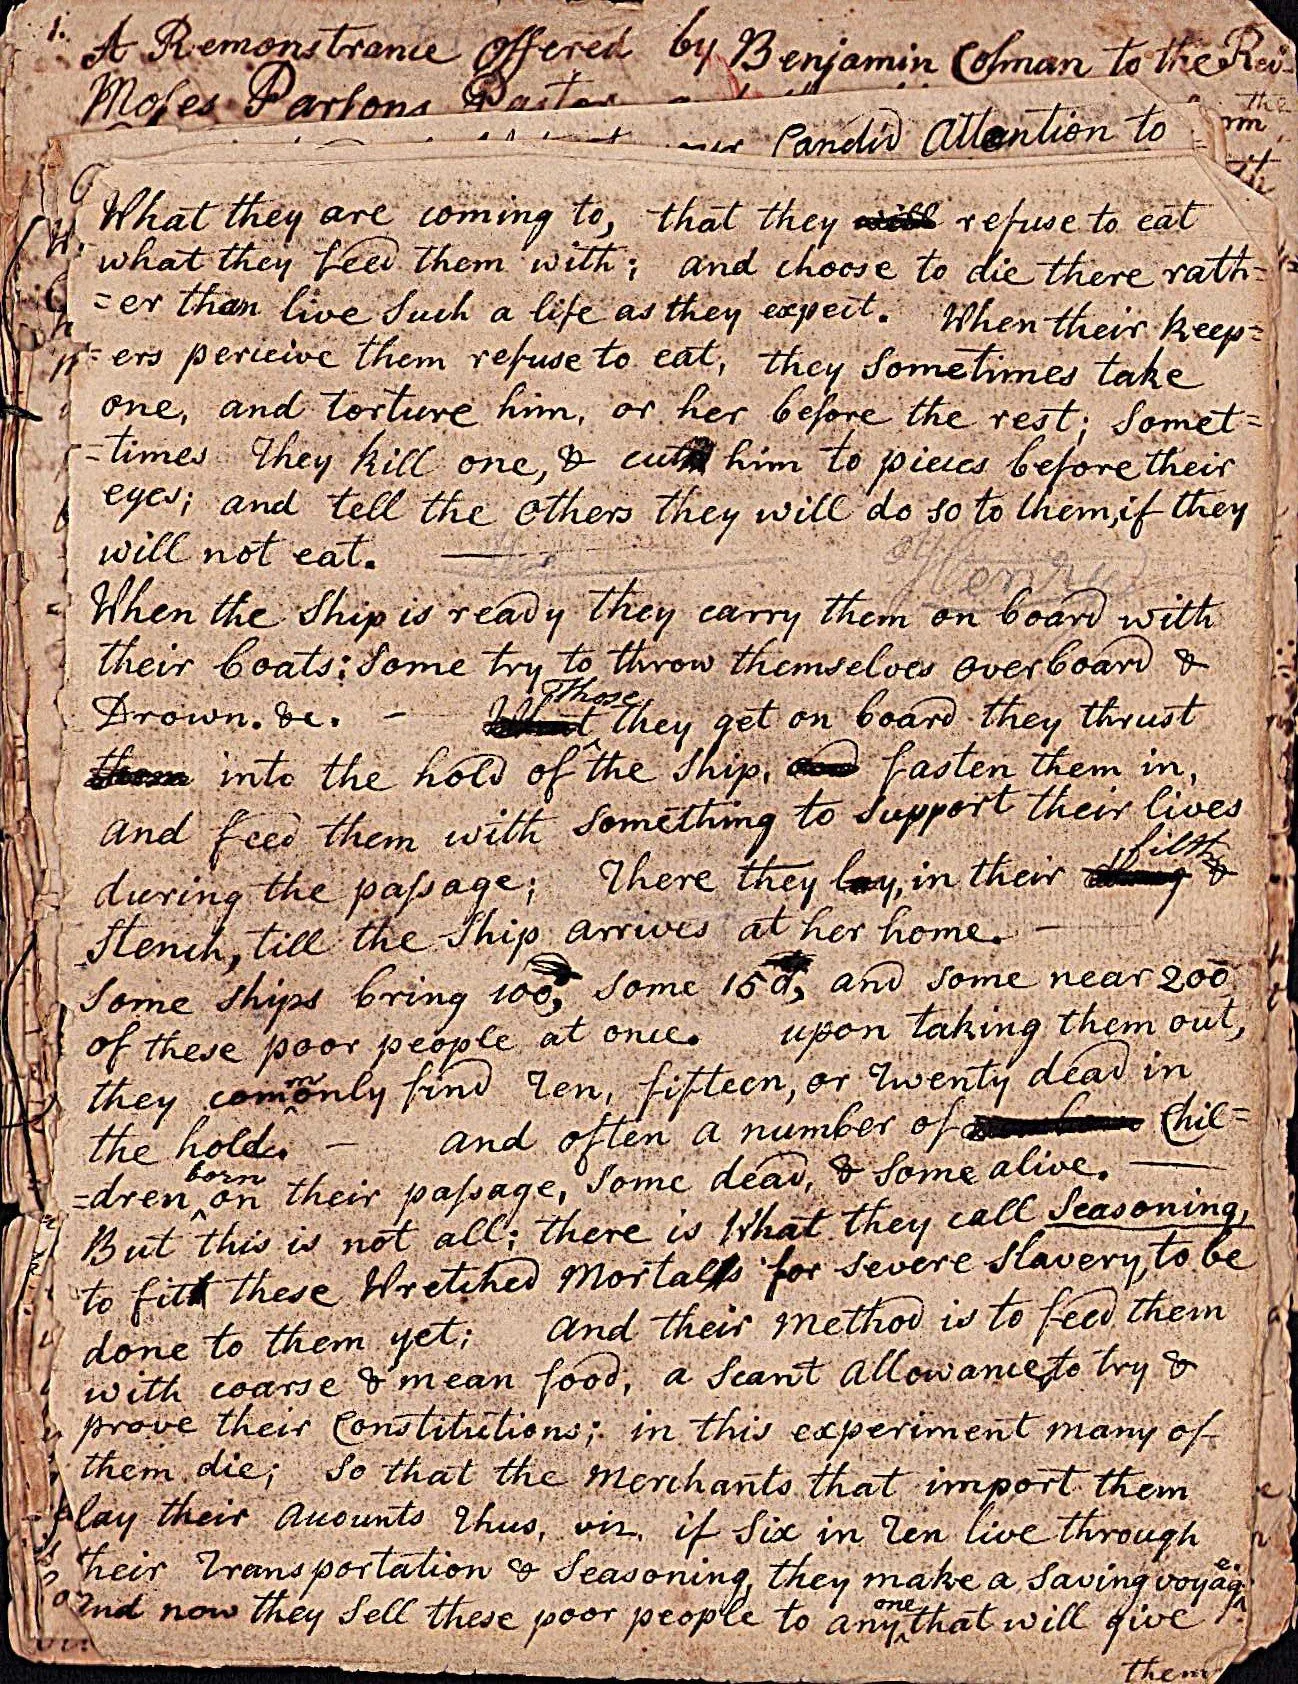 1. A Remonstrance offered by Benjamin Colman to the Rev
Moses Parsons Pastor
Candid Attention to
What they are coming to, that they will refuse to eat
what they feed them with; and choose to die there rath=
=er than live Such a life as they expect. When their keep=
=ers perceive them refuse to eat, they Sometimes take
one, and torture him, or her before the rest; Somet=
=times They kill one, & cut him to pieces before their
eyes; and tell the others they will do so to them, if they
will not eat. —
When the Ship is ready they carry them on board with
their boats: Some try to throw themselves overboard &
Those
Drown. &c. — they get on board they thrust
them into the hold of the Ship, and fasten them in,
and feed them with Something to Support their lives
filth
during the paſsage; There they lay, in their &
Stench, till the Ship arrives at her home. —
Some Ships bring 100, Some 150, and Some near 200
of these poor people at once. upon taking them out,
m
they comonly find Ten, fifteen, or Twenty dead in
the hold. — and often a number of Chil=
born
=dren ^ on their paſsage, Some dead, & Some alive. —
But this is not all; there is What they call Seasoning,
to fit these Wretched Mortals for Severe Slavery, to be
done to them yet; And their Method is to feed them
with coarse & mean food, a Scant Allowance, to try &
prove their Constitutions; in this experiment many of
them die; So that the Merchants that import them
lay their Acounts Thus, viz. if Six in Ten live through
their Transportation & Seasoning, they make a Saving voyag^e.
one
And now they Sell these poor people to any ^ that will give
them